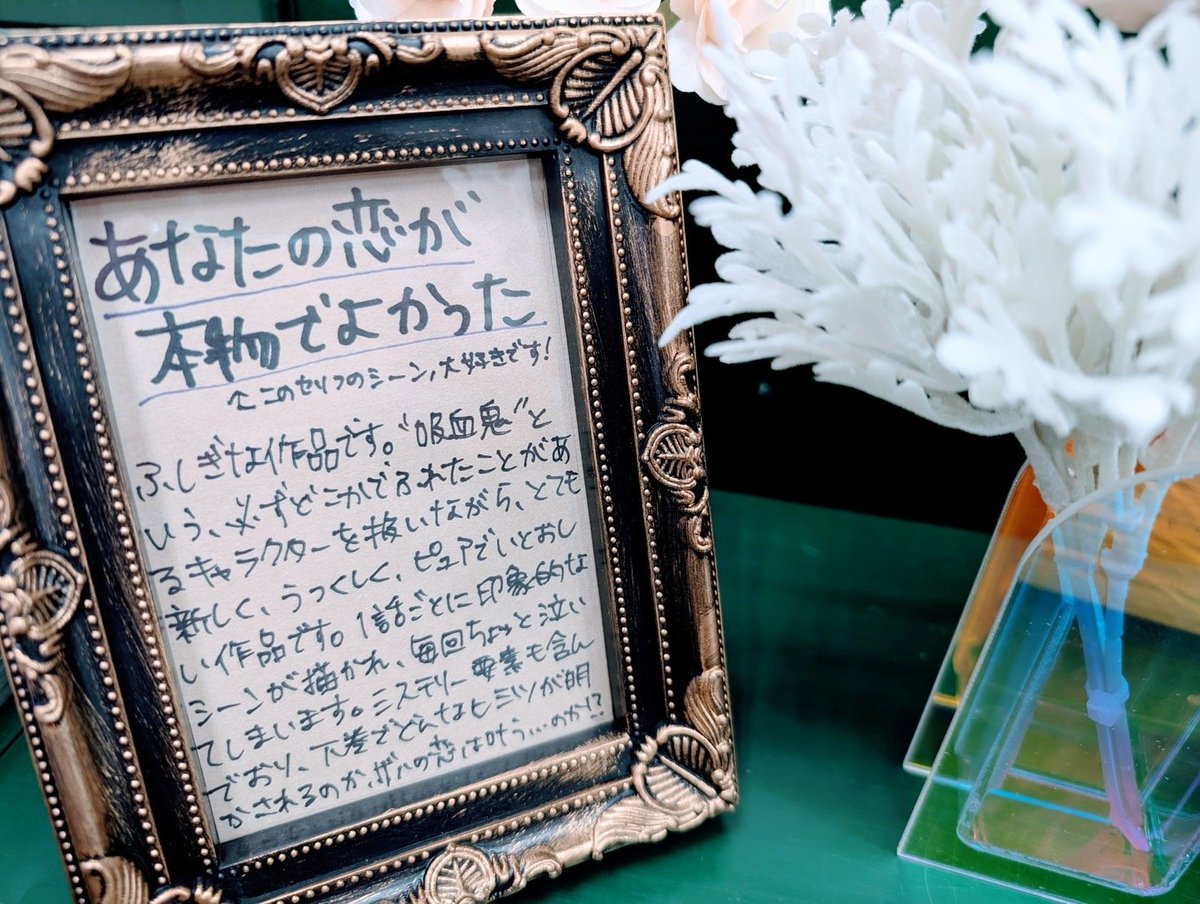 あなたの恋が
本物でよかった
↑このセリフのシーン,大好きです!
ふしぎな作品です。"吸血鬼"と
いう、必ずどこかでふれたことがあ
るキャラクターを描いながら、とても
新しく、うつくしく、ピュアでいとおし
い作品です。1話ごとに印象的な
シーンが描かれ、毎回ちょっと泣い
てしまいます。ミステリー要素も含ん
でおり、下巻でどんなヒミツが明
かされるのか,ザハの恋は叶う…のか!?